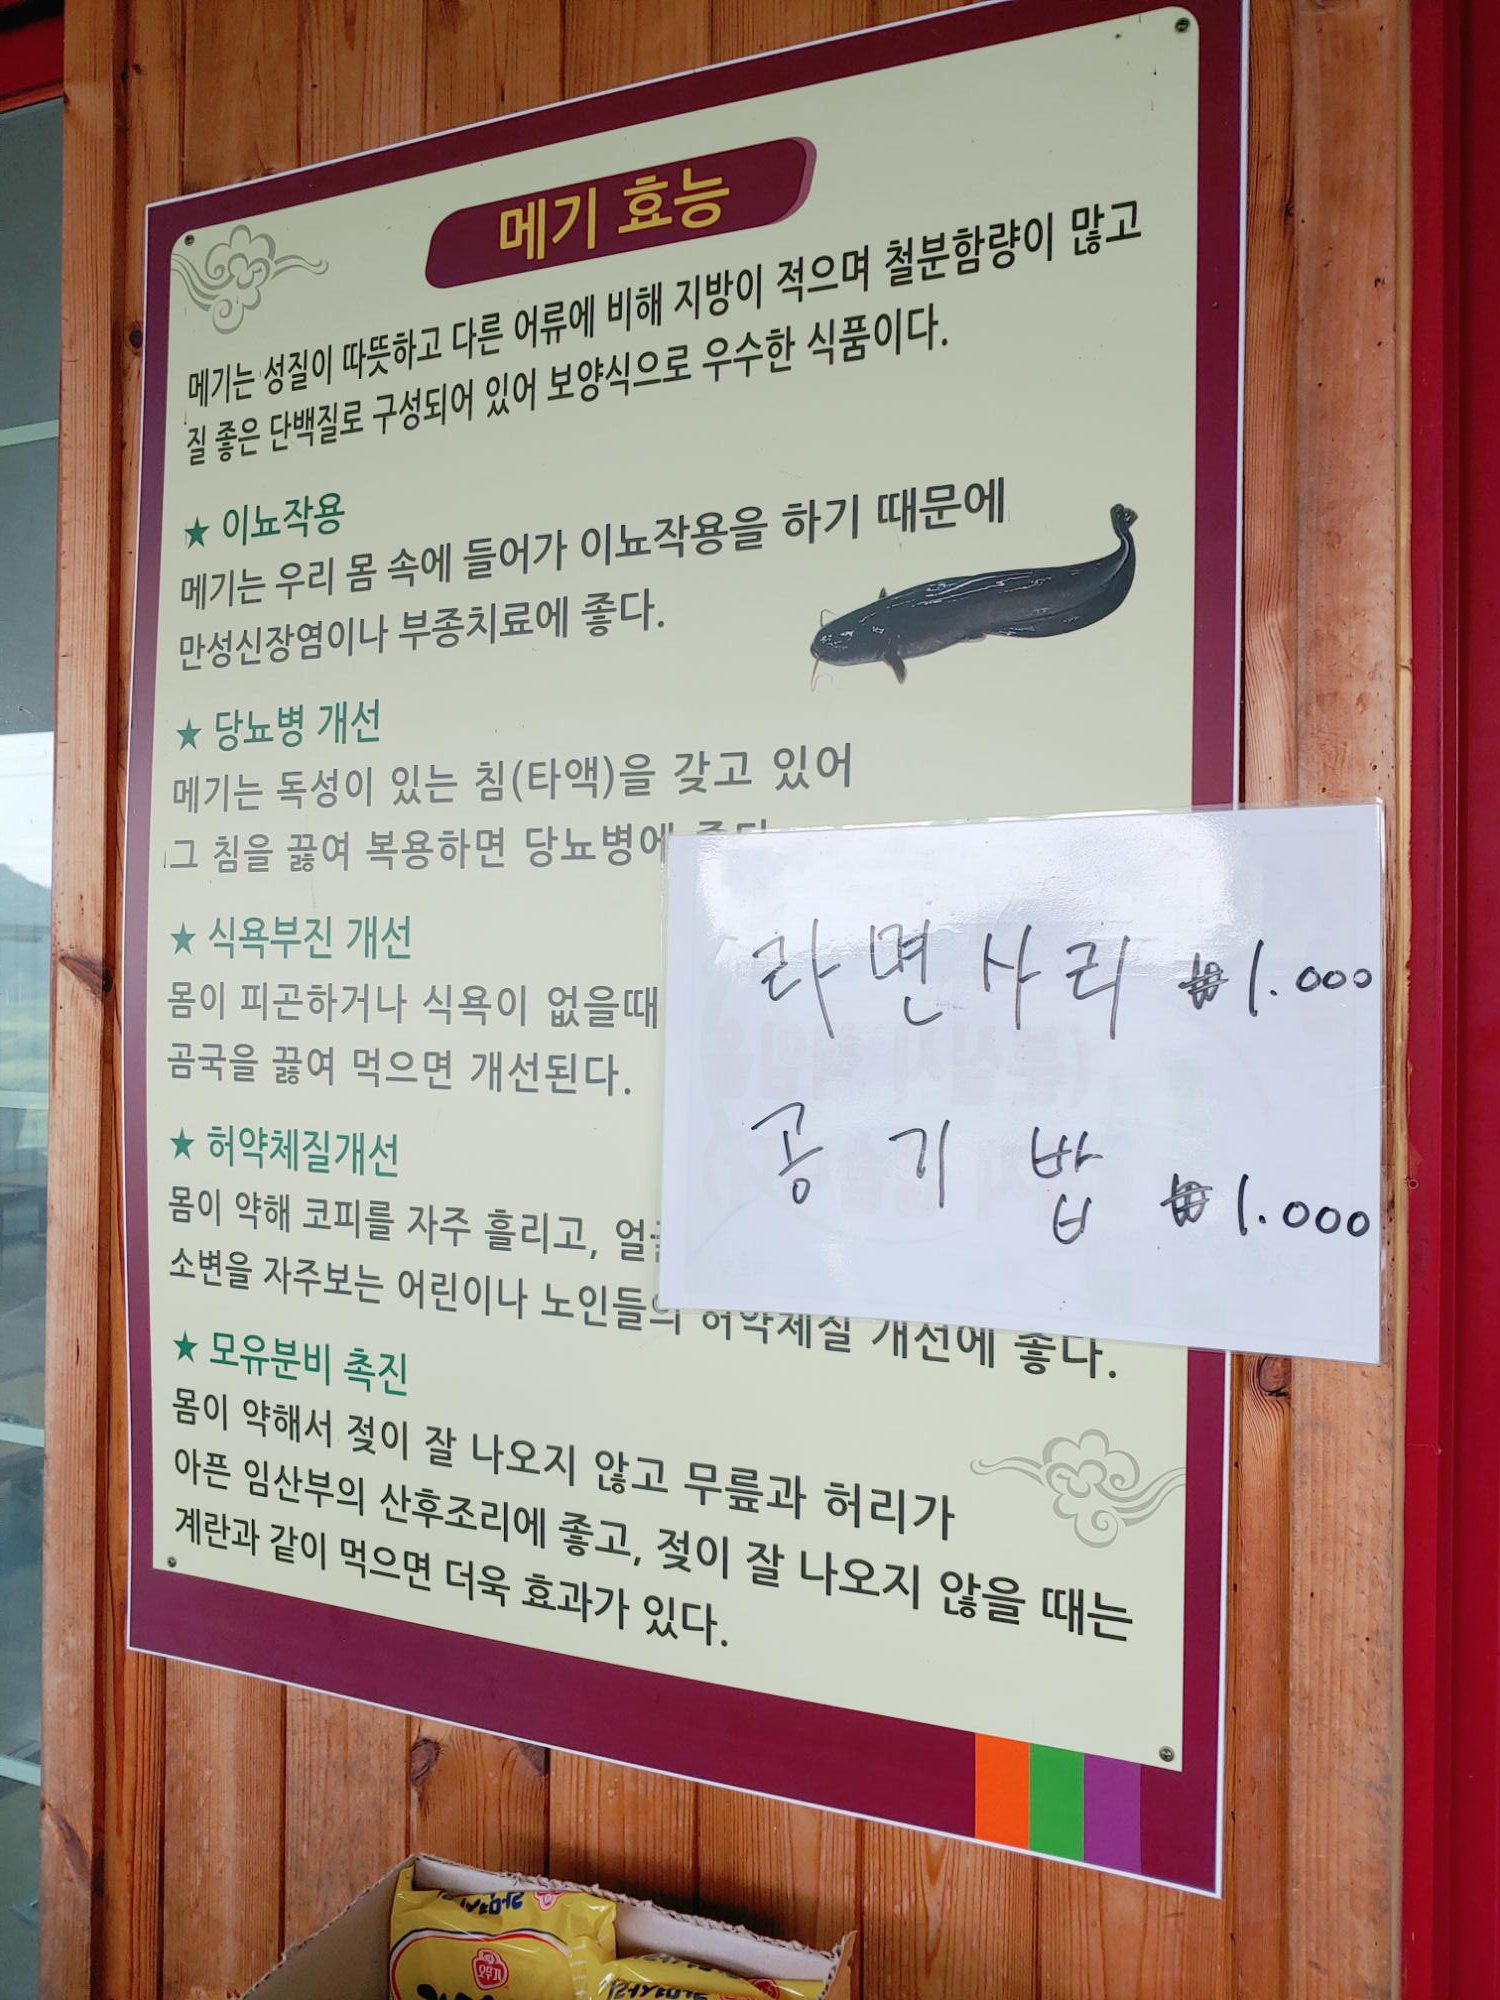 메기 효능
메기는 성질이 따뜻하고 다른 어류에 비해 지방이 적으며 철분함량이 많고
질 좋은 단백질로 구성되어 있어 보양식으로 우수한 식품이다.
★ 이뇨작용
메기는 우리 몸 속에 들어가 이뇨작용을 하기 때문에
만성신장염이나 부종치료에 좋다.
★ 당뇨병 개선
메기는 독성이 있는 침(타액)을 갖고 있어
그 침을 끓여 복용하면 당뇨병에
★ 식욕부진 개선
몸이 피곤하거나 식욕이 없을때
곰국을 끓여 먹으면 개선된다.
★ 허약체질개선
몸이 약해 코피를 자주 흘리고,
소변을 자주보는 어린이나 노인들의 허약체질 개선에 좋다.
★ 모유분비 촉진
몸이 약해서 젖이 잘 나오지 않고 무릎과 허리가
아픈 임산부의 산후조리에 좋고, 젖이 잘 나오지 않을 때는
계란과 같이 먹으면 더욱 효과가 있다.
라면사리 ₩1.000
공기밥 ₩1.000
오뚜기